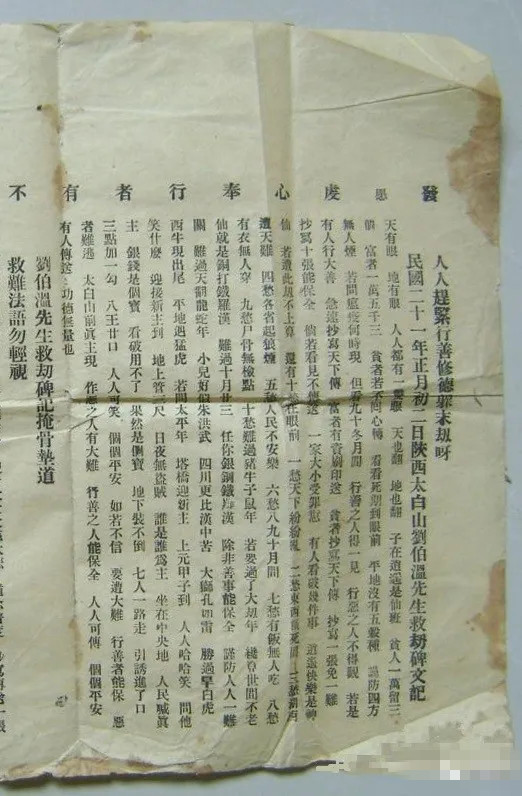 發虔心奉行者有不
人人趕緊行善修德罪末劫呀
民國二十一年正月初二日陝西太白山劉伯溫先生救劫碑文記
天有眼 地有眼 人人都有一雙眼 天也翻 地也翻 子在逍遙是仙班 貧人一萬留三
個 富者一萬五千三 貧者若不回心轉 看看死期到眼前 平地沒有五穀種 謹防四方
無人煙 若問瘟疫何時現 但看九十冬月間 行善之人得一見 行惡之人不得觀 若是
有人行大善 急速抄寫天下傳 富者有資刷印送 貧者抄寫天下傳 抄寫一張免一難
抄寫十張能保全 倘若看見不傳送 一家大小受罪愆 有人看破幾件事 逍遙快樂是神
仙 若遭此劫不上算 還有十愁在眼前 一愁天下紛紛亂 二愁東西餓死 三愁湖
遭天難 四愁各省起狼煙 五愁人民不安樂 六愁八九十月間 七愁有飯無人吃 八愁
有衣無人穿 九愁尸骨無檢點 十愁難過豬牛子鼠年 若要過了大劫年 纔登世間不老
仙 就是銅打鐵羅漢 難過十月廿三 任你銀鋼鐵羅漢 除非善事能保全 謹防人人一難
關 難過天翻龍蛇年 小兒好似朱洪武 四川更比漢中苦 大獅孔如雷 勝過旱白虎
西牛現出尾 平地遇猛虎 若問太平年 塔橋迎新主 上元甲子到 人人哈哈笑 問他
笑什麼 迎接新主到 地上管三尺 日夜無盜賊 誰是誰爲主 坐在中央地 人民喊眞
主 銀錢是個寶 看破用不了 果然是個寶 地下裝不倒 七人一路走 引誘進了口
三點加一勾 八王廿口 人人可笑 個個平安 如若不信 要遭大難 行善者能保 惡
者難逃 太白山前眞主現 作惡之人有大難 行善之人能保全 人人可傳 個個平安
有人傳送 功德無量也
劉伯溫先生救劫碑記掩骨墊道
救難法語勿輕視